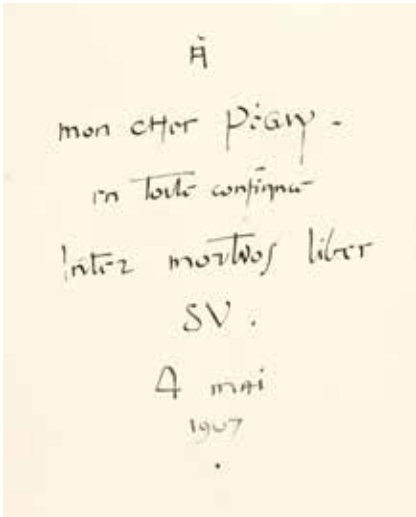 À
mon cher Péguy -
en toute confiance
Inter mortuos liber
SV .
4 mai
1907
.